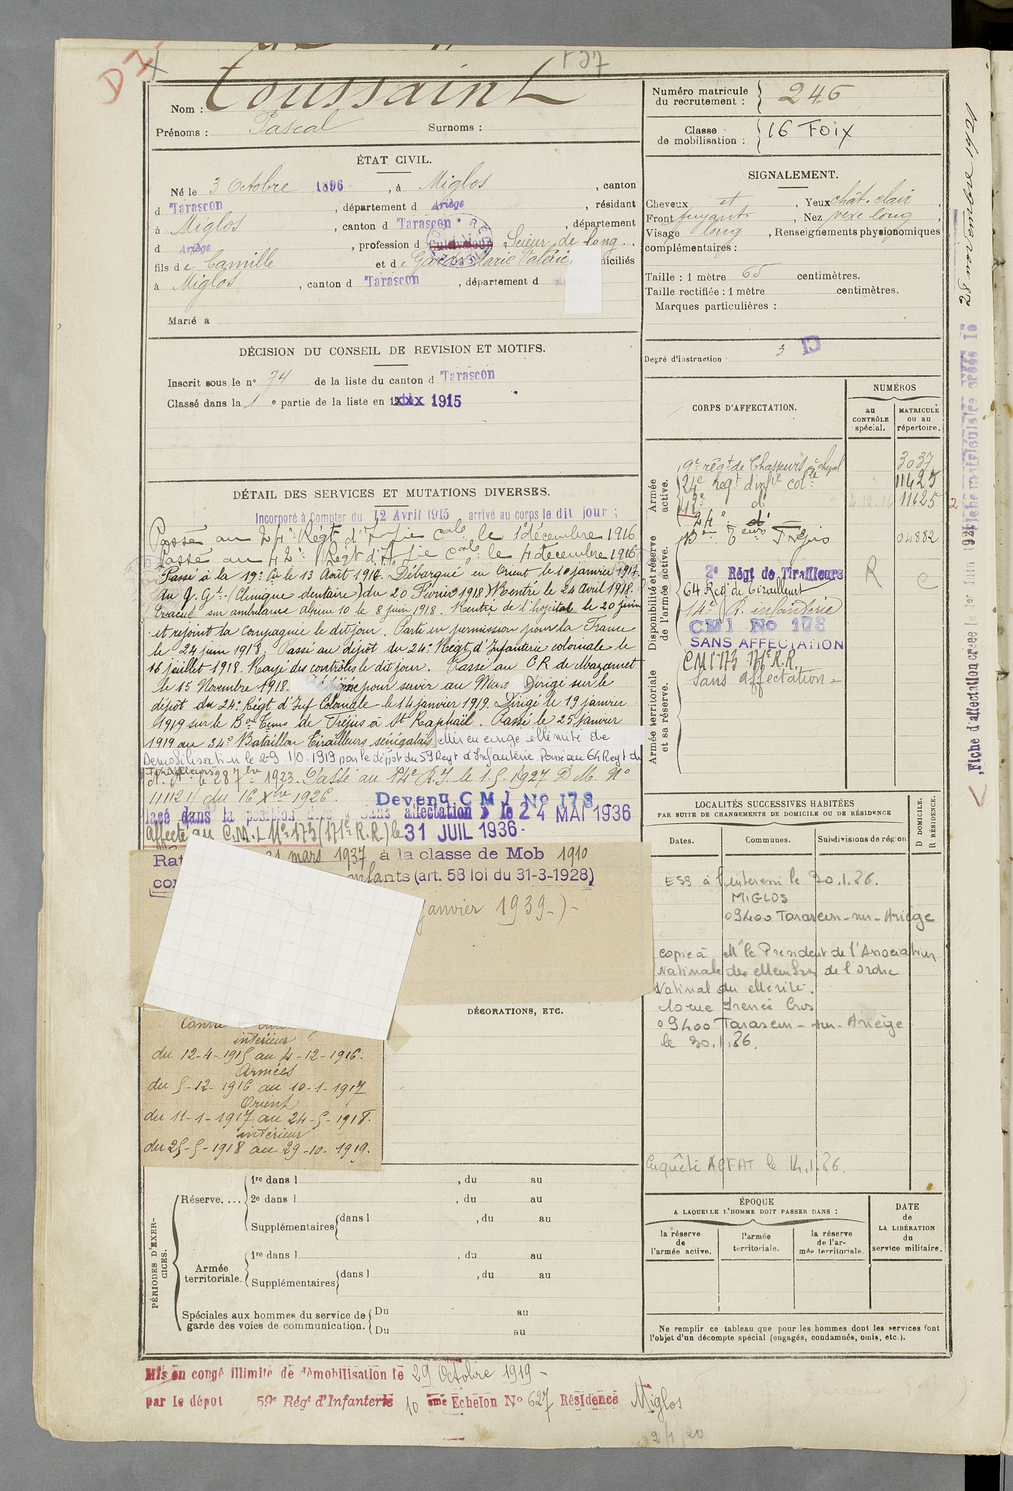 Toussaint
Nom :
Prénoms : Pascal Surnoms :
ÉTAT CIVIL.
Né le 3 Octobre 1896, à Miglos, canton
d Tarascon, département d Ariège, résidant
à Miglos, canton d Tarascon, département
d Ariège, profession d Scieur de long
fils d e Camille et d e Marie Valérie
à Miglos, canton d Tarascon, département d
Marié à
DÉCISION DU CONSEIL DE REVISION ET MOTIFS.
Inscrit sous le n° 74 de la liste du canton d Tarascon
Classé dans la 1 e partie de la liste en 1915
DÉTAIL DES SERVICES ET MUTATIONS DIVERSES.
Incorporé à Compter du 12 Avril 1915, arrivé au corps le dit jour ;
Passé au 24e Régt d'Infie Cole le 1 décembre 1916
Passé au 42e Régt d'Infie Cole le 4 décembre 1916
Passé à la 19e Cie le 13 Août 1916. Débarqué en Orient le 10 janvier 1917.
Au Q. Gt. (Clinique dentaire) du 20 Février 1918 Rentré le 24 Avril 1918.
Evacué sur ambulance alpine 10 le 8 juin 1918. Rentré de l'hôpital le 20 juin
et rejoint sa Compagnie le dit jour. Parti en permission pour la France
le 24 juin 1918. Passé au dépôt du 24e Régt d'Infanterie coloniale le
16 juillet 1918. Rayé des contrôles le dit jour. Passé au C.R. de Mazamet
le 15 Novembre 1918. pour servir au Dirigé sur le
dépôt du 24e Régt d'Inf Coloniale le 14 janvier 1919. Dirigé le 19 janvier
1919 sur le Bon Tirs de Fréjus à St Raphaël. Passé le 25 Janvier
1919 au 34e Bataillon Tirailleurs sénégalais Mis en congé illimité de
Démobilisation le 29/10.1919 par le dépôt du 59 Regt d'Infanterie Passé au 64 Regt de
Tirailleurs 1923. Passé au 14e R.I. le 1.5.1927 D.M. N°
11112/1 du 16 Xbre 1926. Devenu C M I No 178
lacé dans la position sans affectation le 24 MAI 1936
affecté au C.M.I. N° 173 (171e R.R) le 31 JUIL 1936-
Rat 21 mars 1937 à la classe de Mob 1910
com enfants (art. 58 loi du 31-3-1928)
janvier 1939-)-
DÉCORATIONS, ETC.
intérieur
du 12-4-1915 au 4-12-1916.
Armées
du 5-12-1916 au 10-1-1917
Orient
du 11-1-1917 au 24-5-1918.
intérieur
du 25-5-1918 au 29-10-1919.
PÉRIODES D'EXERCICES.
Réserve.... 1re dans l , du au
2e dans l , du au
Supplémentaires dans l , du au
Armée territoriale. 1re dans l , du au
Supplémentaires dans l , du au
Spéciales aux hommes du service de garde des voies de communication. Du au
Du au
Mis en congé illimité de démobilisation le 29 Octobre 1919-
par le dépot 59e Régt d'Infanterie 10 eme Echelon N° 627 Résidence Miglos
2/1/20
Numéro matricule du recrutement : 246
Classe de mobilisation : 16 FOIX
SIGNALEMENT.
Cheveux et, Yeux chât. clair
Front fuyant, Nez vexe long
Visage long, Renseignements physionomiques
complémentaires :
Taille : 1 mètre 65 centimètres.
Taille rectifiée : 1 mètre centimètres.
Marques particulières :
Degré d'instruction 3
CORPS D'AFFECTATION.
NUMÉROS
au CONTRÔLE spécial.
MATRICULE ou au répertoire.
Armée active.
9e régt de Chasseurs à cheval 3037
24e Regt d'infie Cole 11425
42e d° 11425
24e d°
Disponibilité et réserve de l'armée active.
Fréjus 04882
2e Régt de Tirailleurs R C
64 Regt de Tirailleurs
14e R. infanterie
CMI No 178
SANS AFFECTATION
Armée territoriale et sa réserve.
CMI 173 171e R.R.
Sans affectation-
LOCALITÉS SUCCESSIVES HABITÉES
PAR SUITE DE CHANGEMENTS DE DOMICILE OU DE RÉSIDENCE
Dates. Communes. Subdivisions de région D. DOMICILE. R. RÉSIDENCE.
ESS à l'interessé le 20.1.86.
MIGLOS
09400 Tarascon-sur-Ariège
copie à Mr le Président de l'Association
Nationale des Membres de l'ordre
National du Mérite.
09400 Tarascon-sur-Ariège
le 20.1.86.
Enquête le 14.1.86.
ÉPOQUE
A LAQUELLE L'HOMME DOIT PASSER DANS :
DATE de LA LIBÉRATION du service militaire.
la réserve de l'armée active.
l'armée territoriale.
la réserve de l'armée territoriale.
Ne remplir ce tableau que pour les hommes dont les services font
l'objet d'un décompte spécial (engagés, condamnés, omis, etc.).